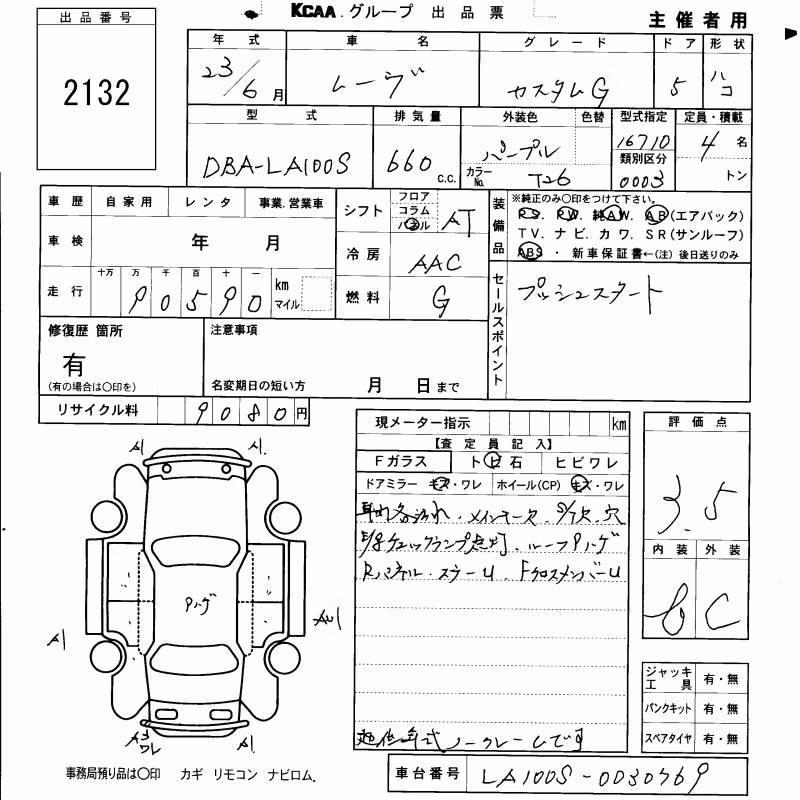 KCAA.グループ 出品票
主催者用
出品番号
2132
年式 車名 グレード ドア 形状
23/6月 ムーヴ カスタムG 5 ハコ
型式 排気量 外装色 色替 型式指定 定員・積載
DBA-LA100S 660 C.C. パープル カラーNo. T26 16710 4名
類別区分 0003 トン
車歴 自家用 レンタ 事業.営業車
車検 年 月
走行 十万 万 千 百 十 一 km マイル
90590
シフト フロア コラム パネル AT
冷房 AAC
燃料 G
装備品 ※純正のみ○印をつけて下さい。
PS. PW. 純AW. AB(エアバック)
TV. ナビ. カワ. SR(サンルーフ)
ABS ・ 新車保証書←(注)後日送りのみ
セールスポイント プッシュスタート
修復歴 箇所
有
(有の場合は○印を)
注意事項
名変期日の短い方 月 日まで
リサイクル料 9080円
現メーター指示 km
【査定員記入】
Fガラス トビ石 ヒビワレ
ドアミラー キズ・ワレ ホイール(CP) キズ・ワレ
メインキー欠 穴
チェックランプ点灯 ルーフPハゲ
Rパネル・ステーU Fクロスメンバー U
ノークレームです
評価点
3.5
内装 外装
C
ジャッキ工具 有・無
パンクキット 有・無
スペアタイヤ 有・無
A1 A1
Pハゲ
A1
A3 ワレ A1
事務局預り品は○印 カギ リモコン ナビロム.
車台番号 LA100S-0030769